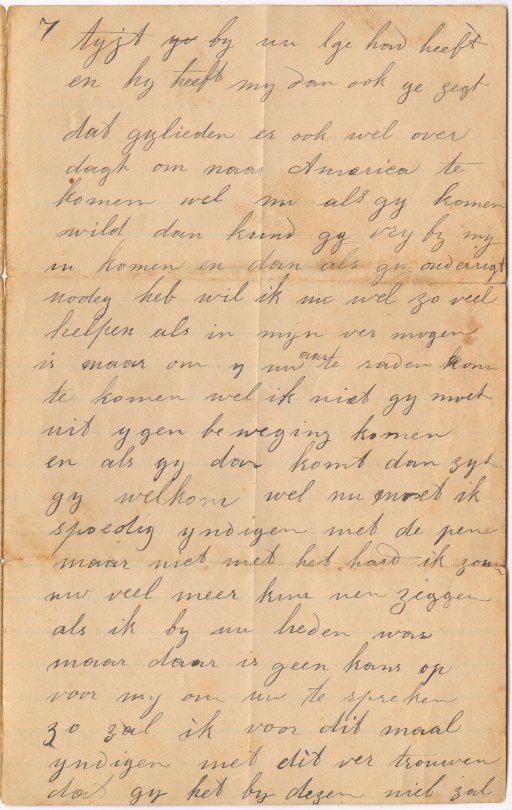 7 tyzt by uu lge had heeft
en hy heeft my dan ook ge zegt
dat gylieden er ook wel over
dagt om naar America te
komen wel nu als gy komen
wild dan kund gy vry by my
in komen en dan als gy onderrigt
nodeg heb wil ik uu wel zo veel
helpen als in myn ver mogen
is maar om y uu aan te raden kom
te komen wel ik niet gy moet
uit ygen be weging komen
en als gy dan komt dan zyt
gy welkom wel nu moet ik
spoedig yndigen met de pen
maar niet met het hard ik zou
uw veel meer kun nen zeggen
als ik by uu lieden was
maar daar is geen kans op
voor my om uw te spreken
zo zal ik voor dit maal
yndigen met dit ver trouwen
dat gy het by dezen niet zal